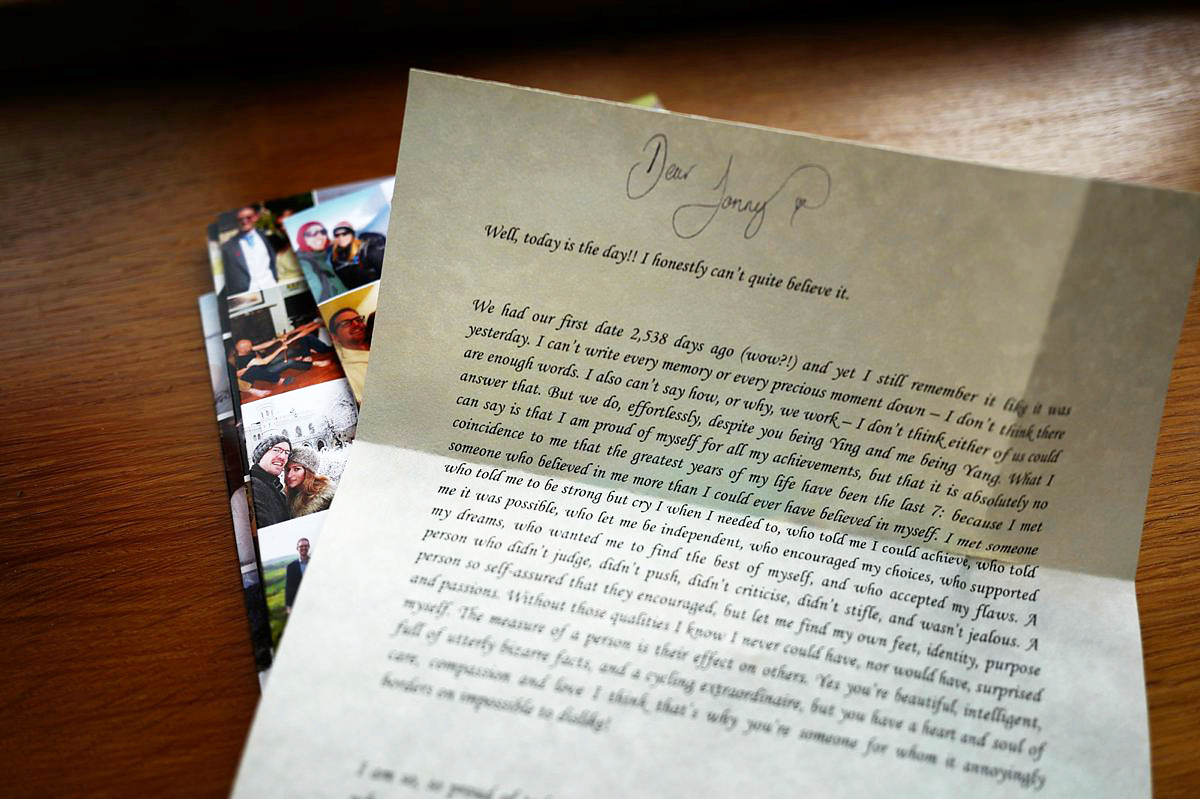 Dear Jonny
Well, today is the day!! I honestly can't quite believe it.
We had our first date 2,538 days ago (wow?!) and yet I still remember it like it was
yesterday. I can't write every memory or every precious moment down – I don't think there
are enough words. I also can't say how, or why, we work – I don't think either of us could
answer that. But we do, effortlessly, despite you being Ying and me being Yang. What I
can say is that I am proud of myself for all my achievements, but that it is absolutely no
coincidence to me that the greatest years of my life have been the last 7: because I met
someone who believed in me more than I could ever have believed in myself. I met someone
who told me to be strong but cry I when I needed to, who told me I could achieve, who told
me it was possible, who let me be independent, who encouraged my choices, who supported
my dreams, who wanted me to find the best of myself, and who accepted my flaws. A
person who didn't judge, didn't push, didn't criticise, didn't stifle, and wasn't jealous. A
person so self-assured that they encouraged, but let me find my own feet, identity, purpose
and passions. Without those qualities I know I never could have, nor would have, surprised
myself. The measure of a person is their effect on others. Yes you're beautiful, intelligent,
full of utterly bizarre facts, and a cycling extraordinaire, but you have a heart and soul of
care, compassion and love I think that's why you're someone for whom it annoyingly
borders on impossible to dislike!
I am so, so proud of